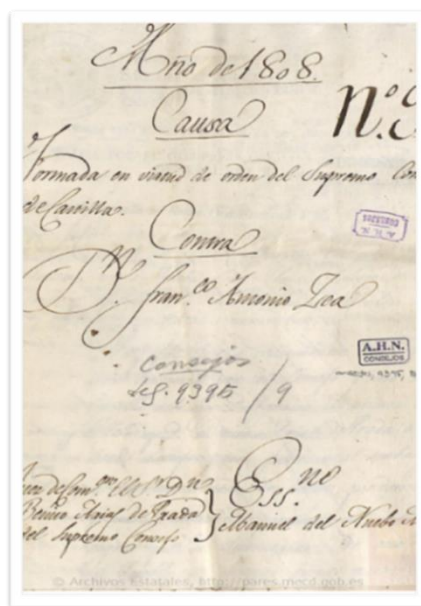 Año de 1808.
Causa
Nº. 9
Formada en virtud de orden del Supremo Con
de Castilla.
Contra
Dn. Franco. Antonio Zea
A.H.N.
CONSEJOS
A.H.N.
CONSEJOS
Consejos
leg. 9395 / 9
Juez de Com.on el Sr. Dn.
Benito Arias de Prada
del Supremo Consejo
Essno
Manuel del Nuebo
© Archivos Estatales, http://pares.mecd.gob.es